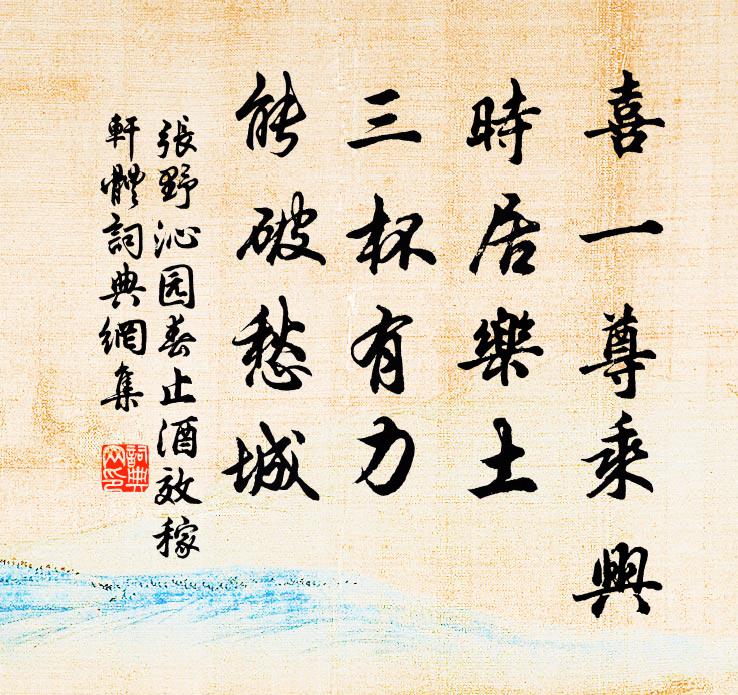 喜一尊乘興
時居樂土
三杯有力
能破愁城
張野沁园春止酒效稼
軒體詞典網集
詞典網印